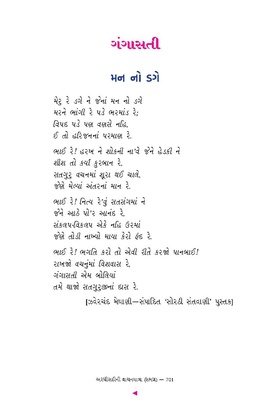 ગંગાસતી
મન નો ડગે
મેરુ રે ડગે ને જેનાં મન નો ડગે
મરને ભાંગી રે પડે ભરમાંડ રે;
વિપદ પડે પણ વણસે નહિ,
ઈ તો હરિજનનાં પરમાણ રે.
ભાઈ રે! હરખ ને શોકની ના'વે જેને હેડકી ને
શીશ તો કર્યાં કુરબાન રે.
સતગુરુ વચનમાં શૂરા થઈ ચાલે,
જેણે મેલ્યાં અંતરનાં માન રે.
ભાઈ રે! નિત્ય રે'વું સતસંગમાં ને
જેને આઠે પો'ર આનંદ રે.
સંકલપ-વિકલપ એકે નહિ ઉરમાં
જેણે તોડી નાખ્યો માયા કેરો ફંદ રે.
ભાઈ રે! ભગતિ કરો તો એવી રીતે કરજો પાનબાઈ!
રાખજો વચનુંમાં વિશવાસ રે.
ગંગાસતી એમ બોલિયાં
તમે થાજો સતગુરુજીનાં દાસ રે.
[ઝવેરચંદ મેઘાણી–સંપાદિત 'સોરઠી સંતવાણી' પુસ્તક]